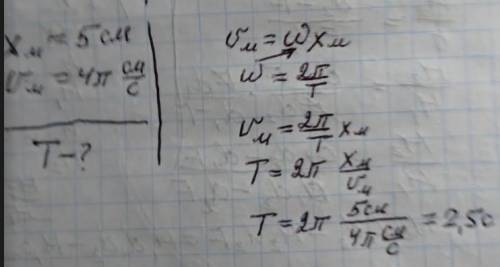 xм = 5 см
υм = 4π см/с
T - ?
υм = ω xм
ω = 2π/T
υм = 2π/T xм
T = 2π xм/υм
T = 2π 5см/4π см/с = 2,5с